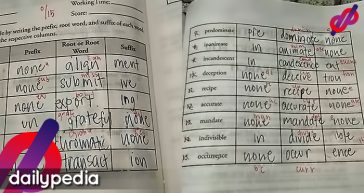 Working Time:
0/15
Score:
by writing the prefix, root word, and suffix of each
the respective columns.
Prefix Root or Root Word Suffix
none align ment
none submit ve
none export ing
un grateful none
chromatic none
transact ion
predominate pre dominate none
inanimate in animate none
incandescent in candescent
deception none deceive tion
recipe none recipe none
accurate none accurate none
mandate none mandate none
indivisible in divide ble
15. occurrence none occur ence
oc curr
dailypedia